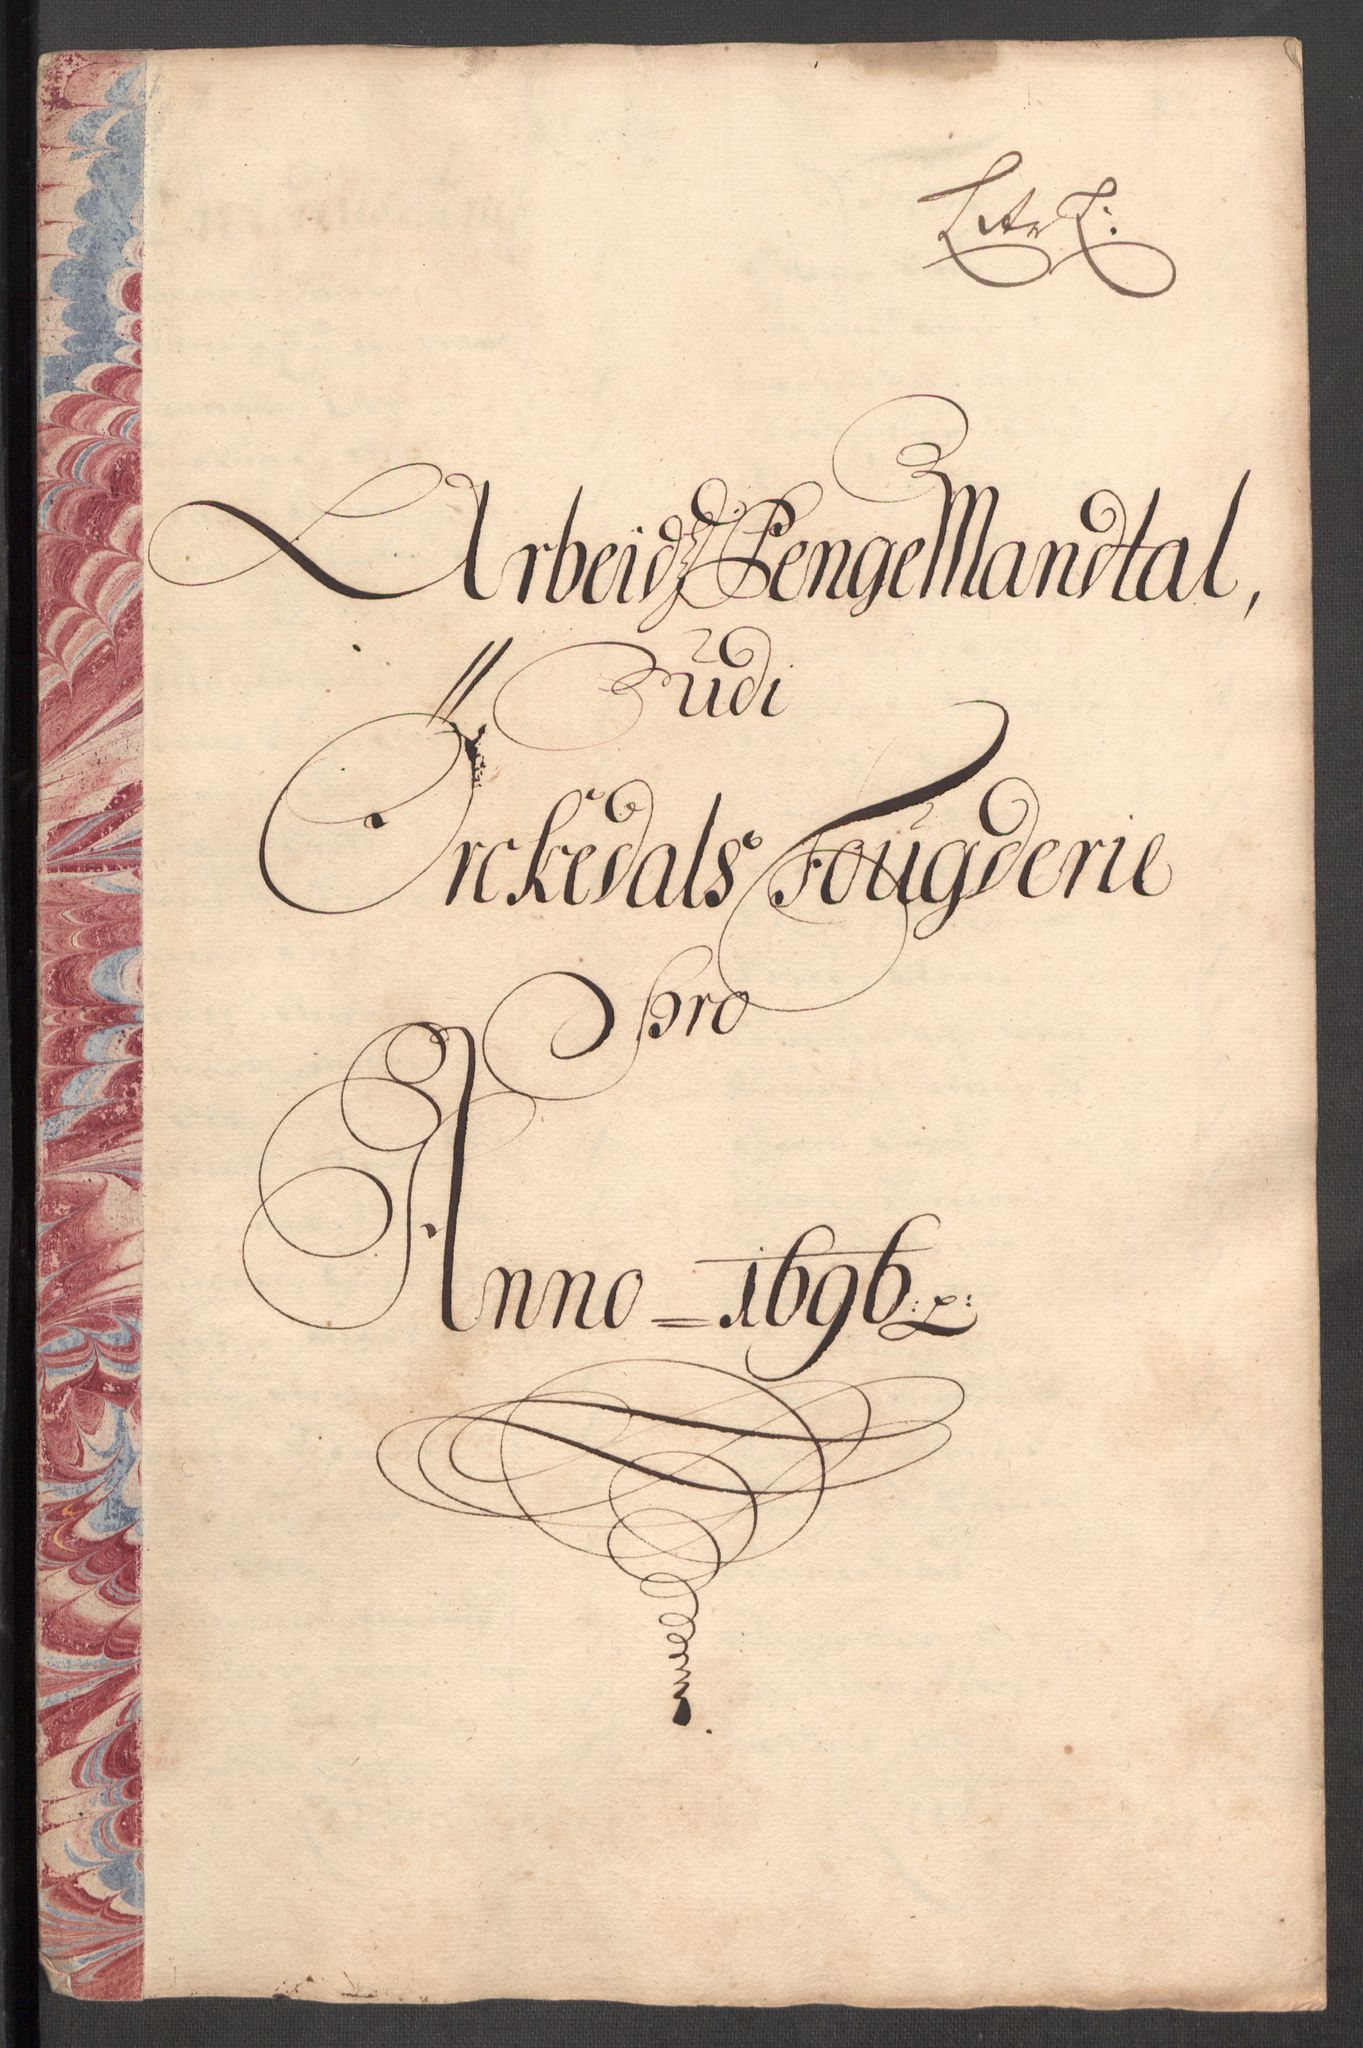 Litr L:
Arbeidz Penge Mandtal,
udi
Örckedals Fougderie
pro
Anno = 1696